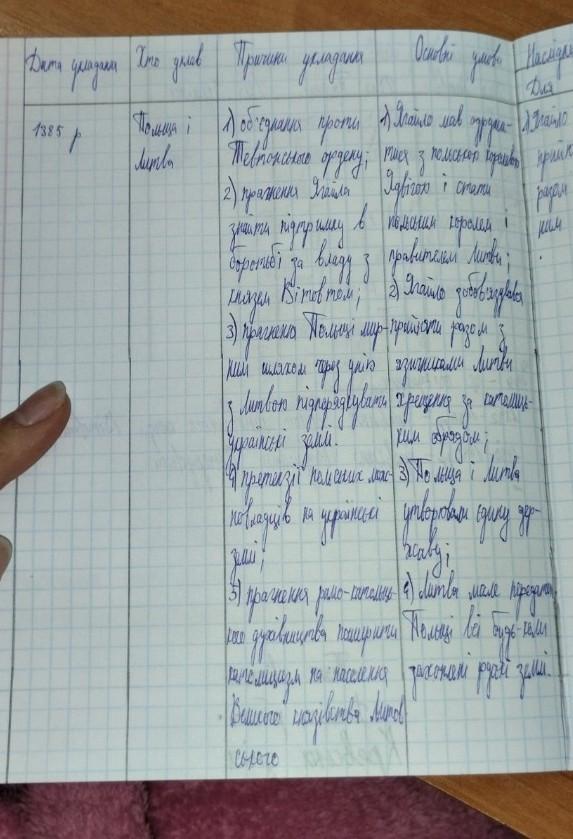 Дата укладання
Хто уклав
Причини укладання
Основні умови
Наслідки
Для
1385 р
Польща і
Литва
1) об'єднання проти
Тевтонського ордену;
2) прагнення Ягайла
знайти підтримку в
боротьбі за владу з
князем Вітовтом;
3) прагнення Польщі мир-
ним шляхом через унію
з Литвою підпорядкувати
українські землі.
4) претензії польських маг-
новладців на українські
землі;
5) прагнення римо-католиць-
кого духівництва поширити
католицизм на населення
Великого князівства Литов
ського
1) Ягайло мав одружи-
тися з польською королевою
Ядвігою і стати
польським королем і
правителем Литви;
2) Ягайло зобов'язувався
прийняти разом з
язичниками Литви
хрещення за католиць-
ким обрядом;
3) Польща і Литва
утворювали єдину дер-
жаву;
4) Литва мала передати
Польщі всі будь-коли
захоплені у землі.
1) Ягайло
прийн
разом
ним